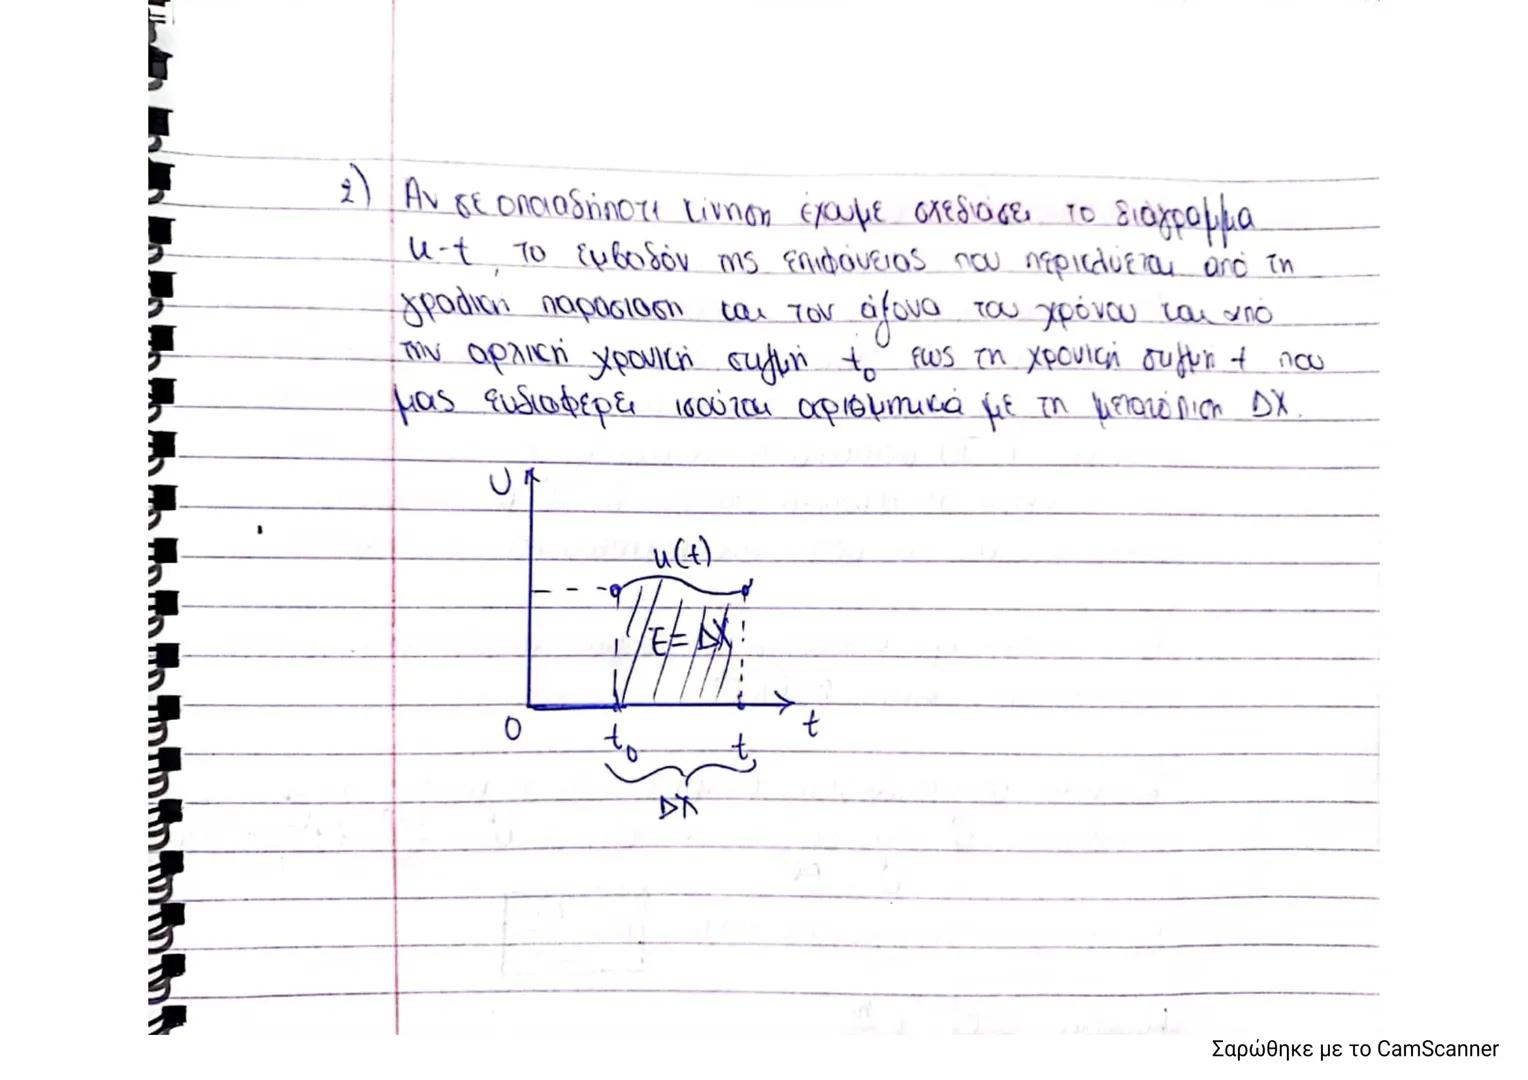 2) Αν σε οποιαδήποτε κίνηση έχουμε σχεδιάσει το διάγραμμα
u-t, το εμβαδόν της επιφάνειας που περικλύεται από τη
γραφική παράσταση και τον άξονα του χρόνου και από
την αρχική χρονική στιγμή t₀ εως τη χρονική στιγμή t που
μας ενδιαφέρει ισούται αριθμητικά με τη μετατόπιση ΔX.
U
u(t)
E = ΔX
0 t₀ t t
ΔX
Σαρώθηκε με το CamScanner